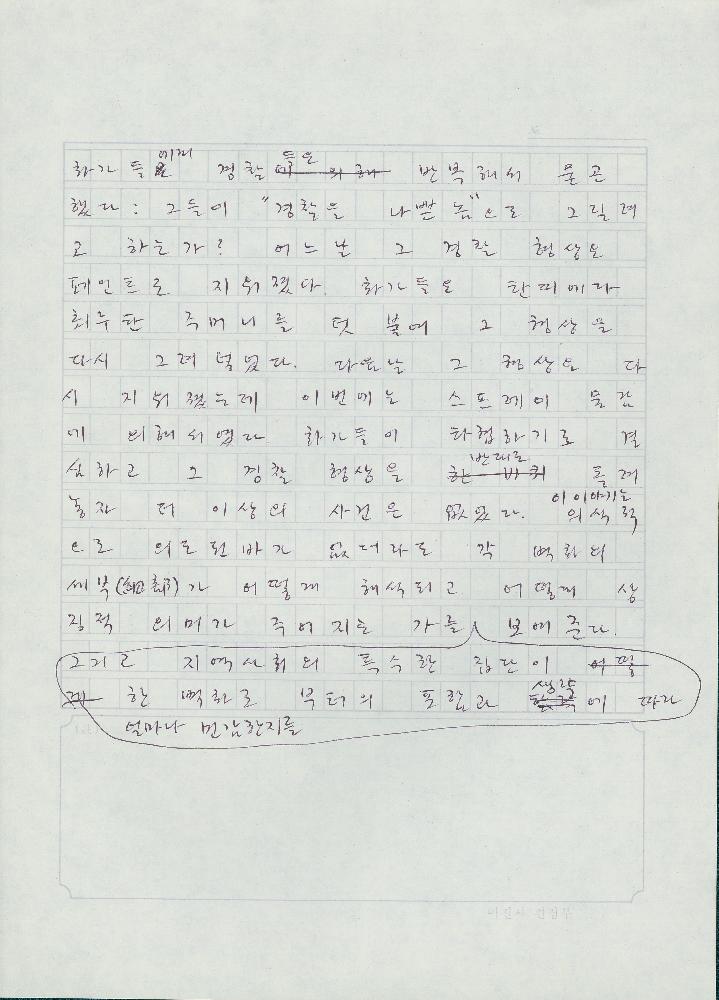 화가들에게 경찰들은 반복해서 묻곤
했다: 그들이 "경찰을 나쁜 놈"으로 그릴려
고 하는가? 어느날 그 경찰 형상은
페인트로 지워졌다. 화가들은 한때에다
최루탄 주머니를 덧붙여 그 형상을
다시 그려 넣었다. 다음날 그 형상은 다
시 지워졌는데 이번에는 스프레이 물감
에 의해서였다. 화가들이 타협하기로 결
심하고 그 경찰 형상을 반대로 돌려
놓자 더 이상의 사건은 없었다. 이 이야기는 의식적
으로 의도된바가 없더라도 각 벽화의
세부(細部)가 어떻게 해석되고 어떻게 상
징적 의미가 주어지는 가를 보여준다.
그리고 지역사회의 특수한 집단이 어떻
게 한 벽화로 부터의 포함과 생략에 따라
얼마나 민감한지를